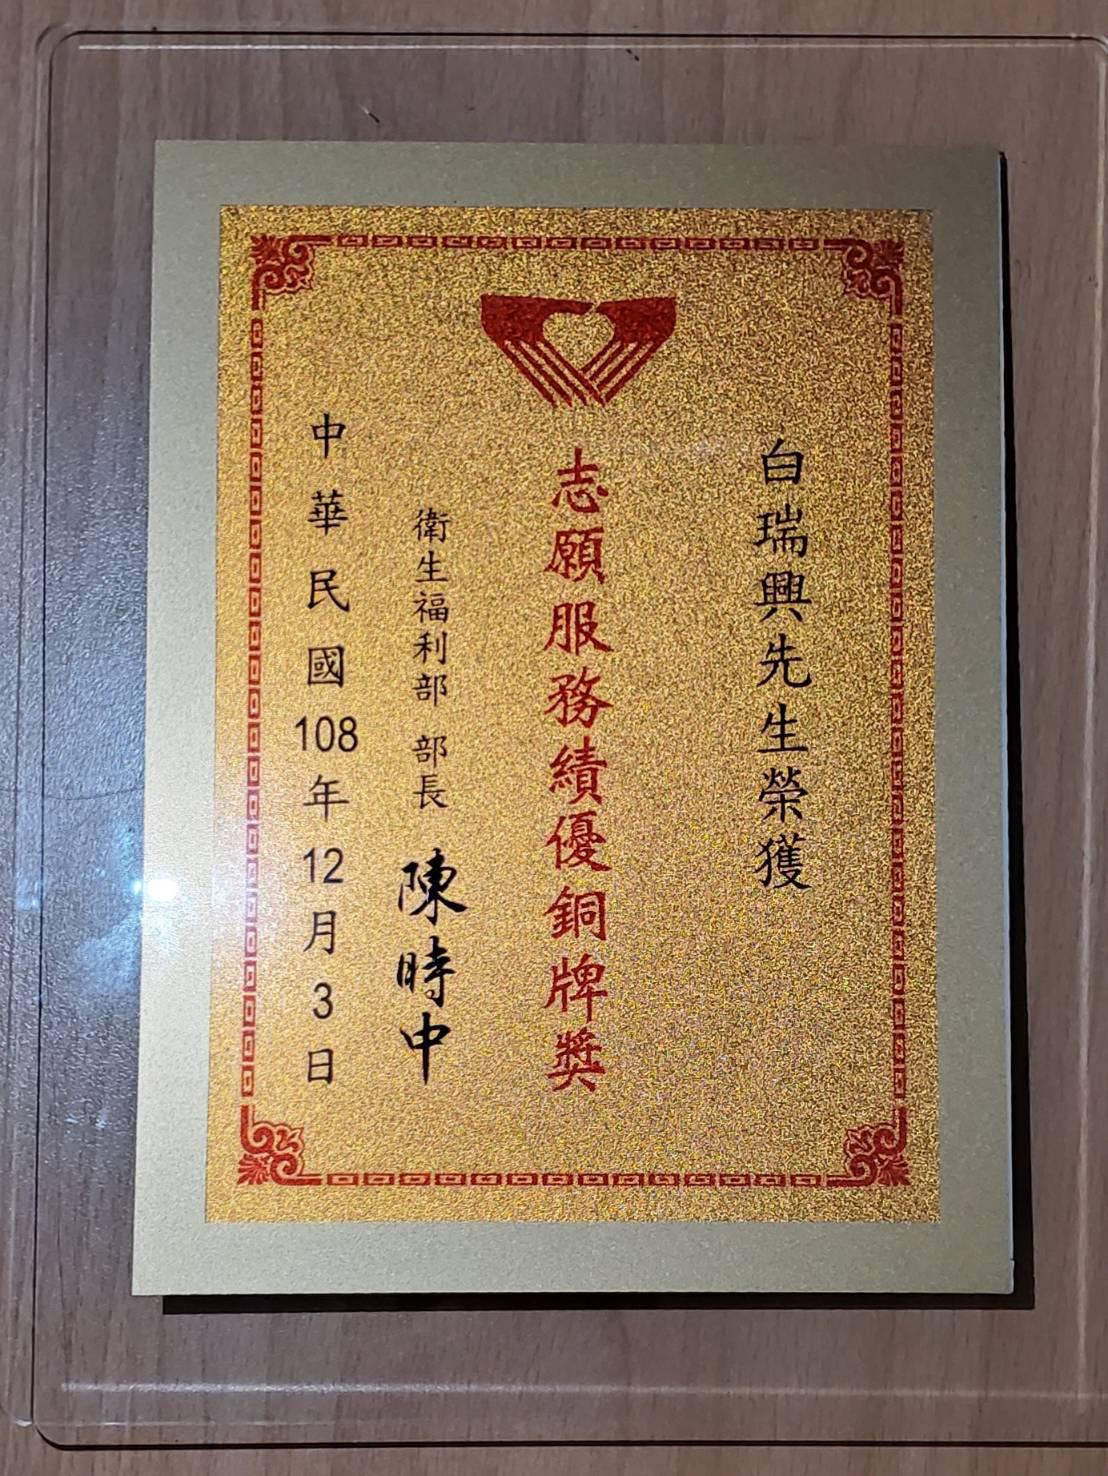 白瑞興先生榮獲
志願服務績優銅牌獎
衛生福利部 部長 陳時中
中華民國108年12月3日